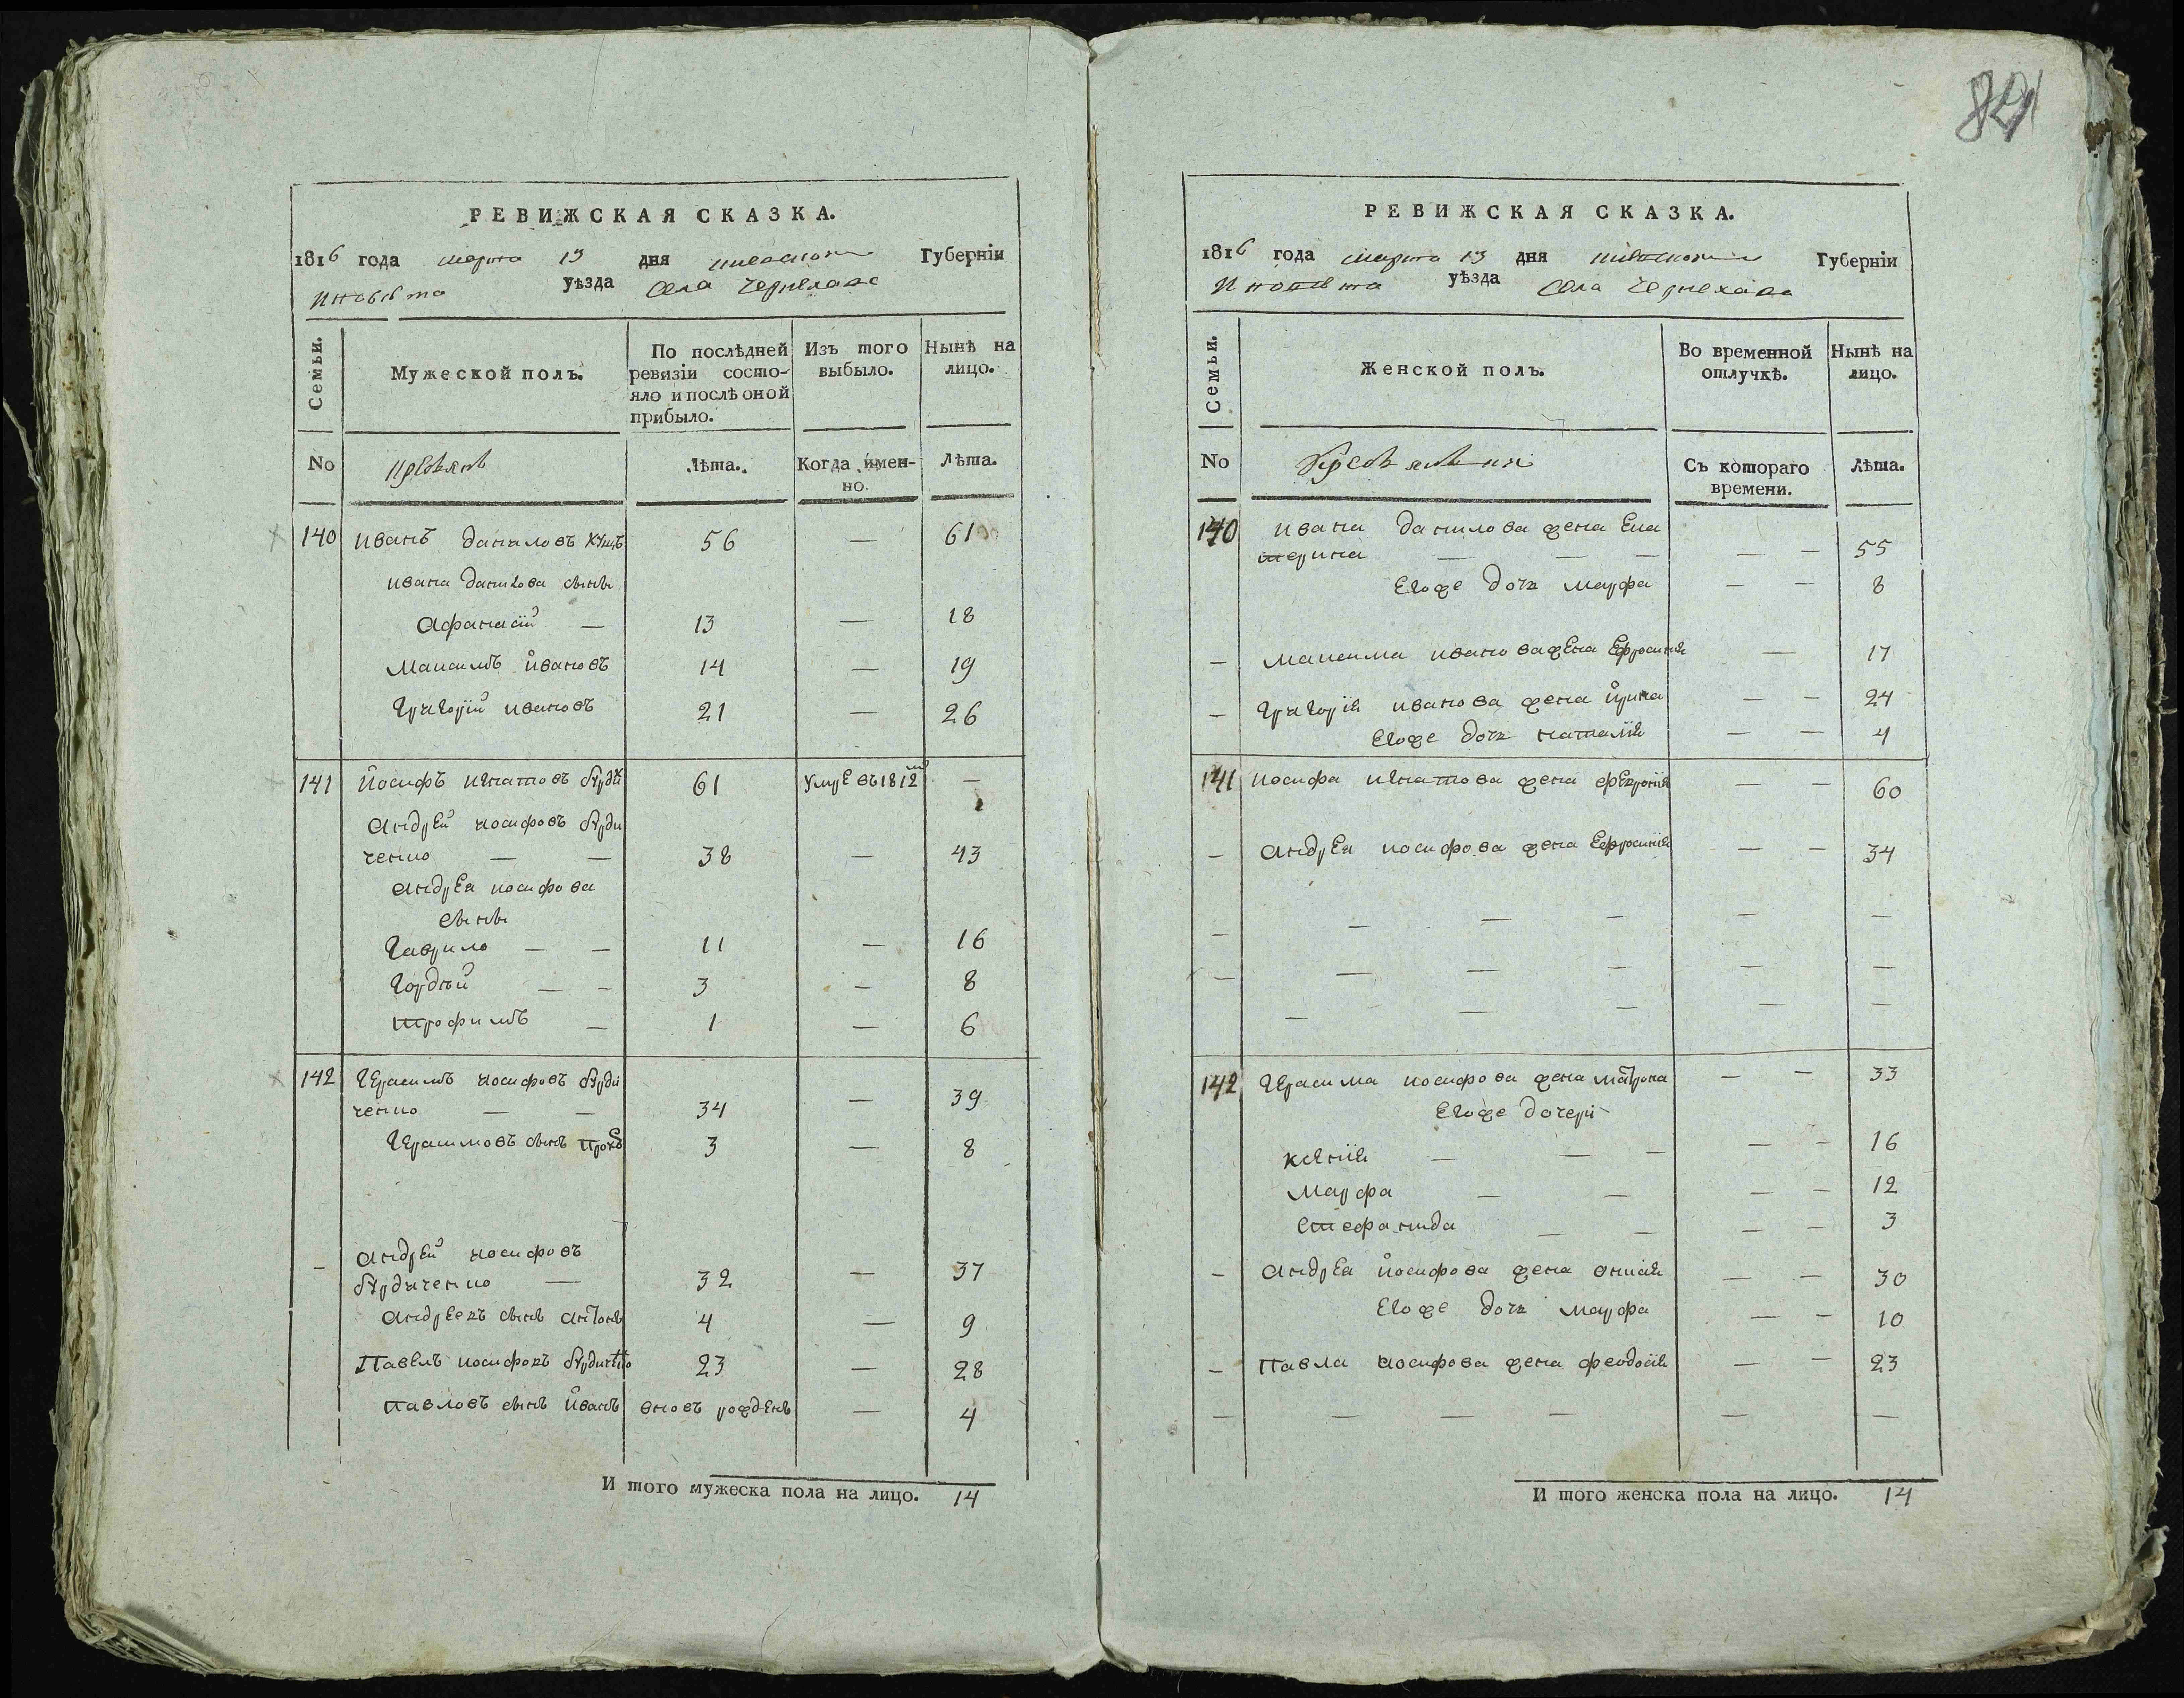 84
РЕВИЖСКАЯ СКАЗКА.
1816 года марта 13 дня киевской Губерніи
уѣзда села Чернехова
Семьи.
Мужеской полъ.
По послѣдней ревизіи состо-
яло и послѣ оной прибыло.
Изъ того выбыло.
Нынѣ на лицо.
No
Лѣта.
Когда имен-
но.
Лѣта.
140 Иванъ Даниловъ Куцъ 56 — 61
Ивана Данилова сыны
Афанасій — 13 — 18
Максимъ Ивановъ 14 — 19
Григорій Ивановъ 21 — 26
141 Іосифъ Игнатовъ 61 Умре въ 1812м —
Андрей Іосифовъ Буди
ченко — — 38 — 43
Андрея Іосифова
сыны
Гаврило — — 11 — 16
Гордѣй — — 3 — 8
Трофимъ — 1 — 6
142 Герасимъ Іосифовъ Буди
ченко — — 34 — 39
Герасимовъ сынъ 3 — 8
— Андрей Іосифовъ
Будиченко — 32 — 37
Андреевъ сынъ Антонъ 4 — 9
Павелъ Іосифовъ Будиченко 23 — 28
Павловъ сынъ Иванъ вновъ рожденъ — 4
И того мужеска пола на лицо. 14
РЕВИЖСКАЯ СКАЗКА.
1816 года марта 13 дня киевской Губерніи
уѣзда села Чернехова
Семьи.
Женской полъ.
Во временной отлучкѣ.
Нынѣ на лицо.
No
Съ котораго времени.
Лѣта.
140 Ивана Данилова жена Ека
терина — — — — — 55
Егоже дочь Марфа — — 8
— Максима Иванова жена Ефросинія — 17
— Григорія Иванова жена Ирина — — 24
Егоже дочь Наталія — — 4
141 Іосифа Игнатова жена Февронія — — 60
— Андрея Іосифова жена Ефросинія — — 34
— — — — — —
— — — — — —
— — — — —
142 Герасима Іосифова жена Матрона — — 33
Егоже дочери
Ксенія — — — — — 16
Марфа — — — — 12
Стефанида — — — — 3
— Андрея Іосифова жена — — 30
Егоже дочь Марфа — — 10
— Павла Іосифова жена Феодосія — — 23
— — — — — —
И того женска пола на лицо. 14